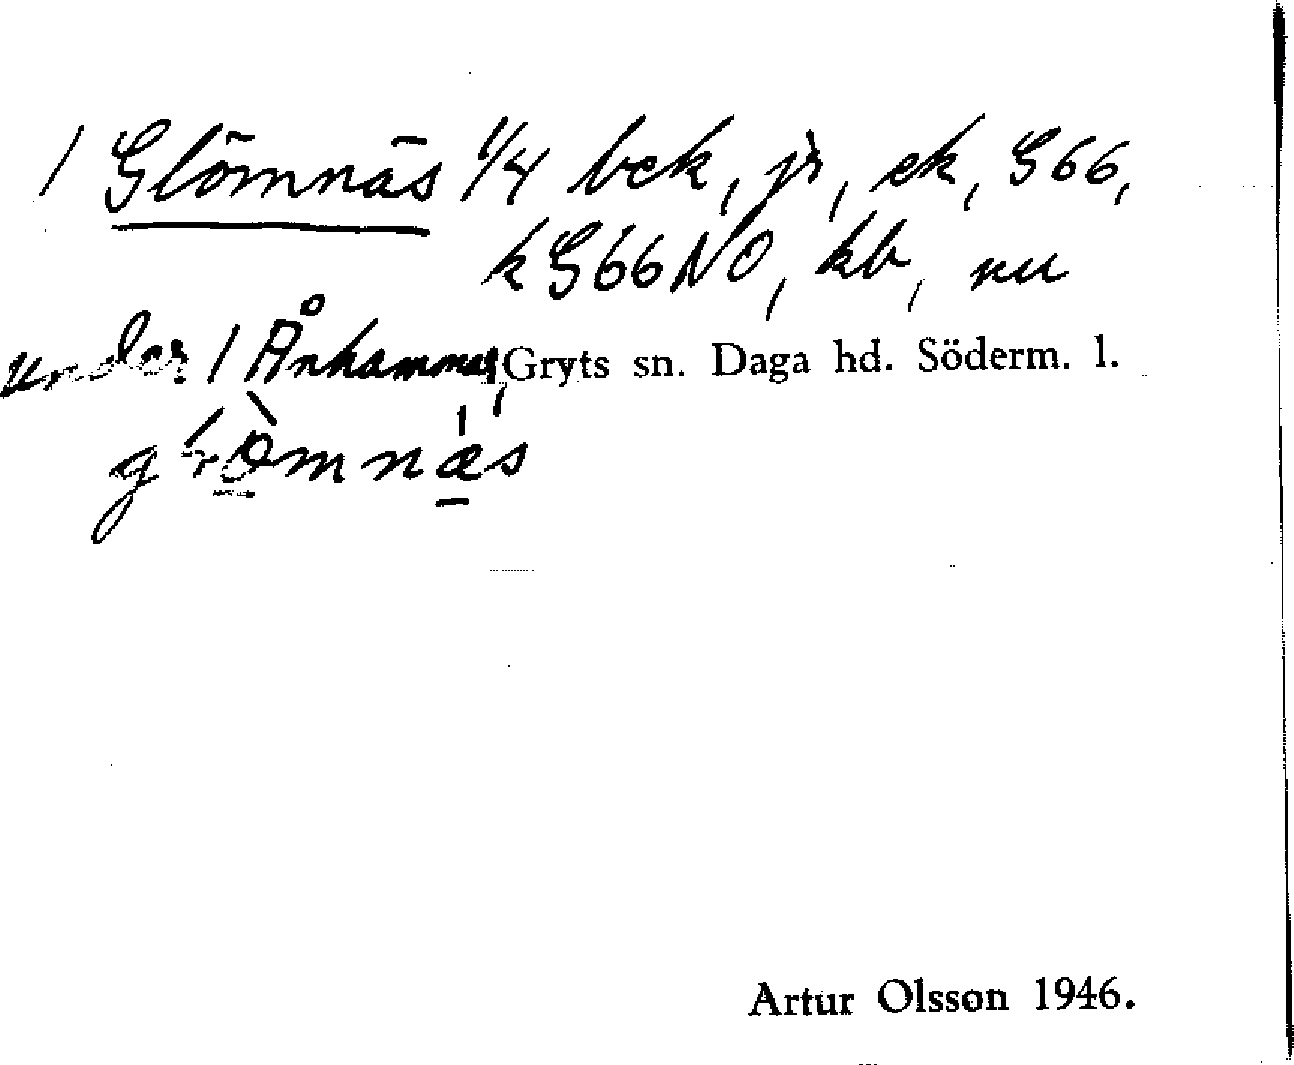 1 Glömnäs 1/4 bek, jr, ek, G66,
kG66NO, kb, nu
under 1 Ånhammar, Gryts sn. Daga hd. Söderm. l.
Artur Olsson 1946.